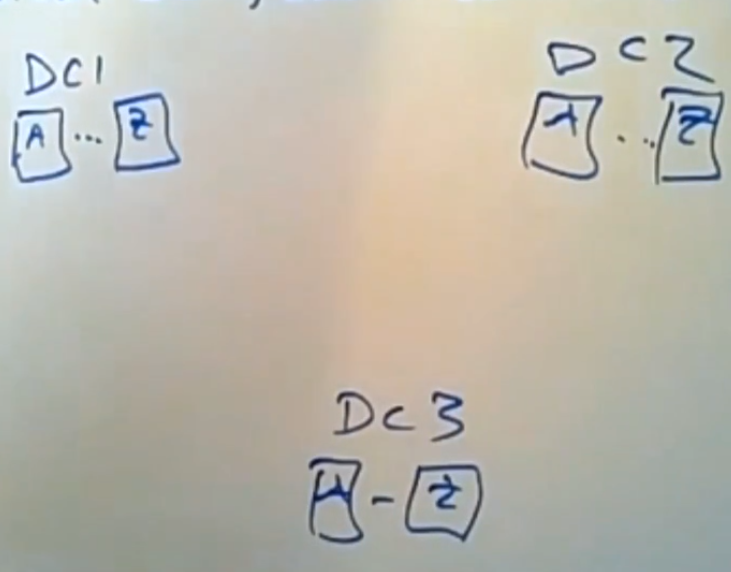 DC1
A ... Z
DC2
A ... Z
DC3
A - Z